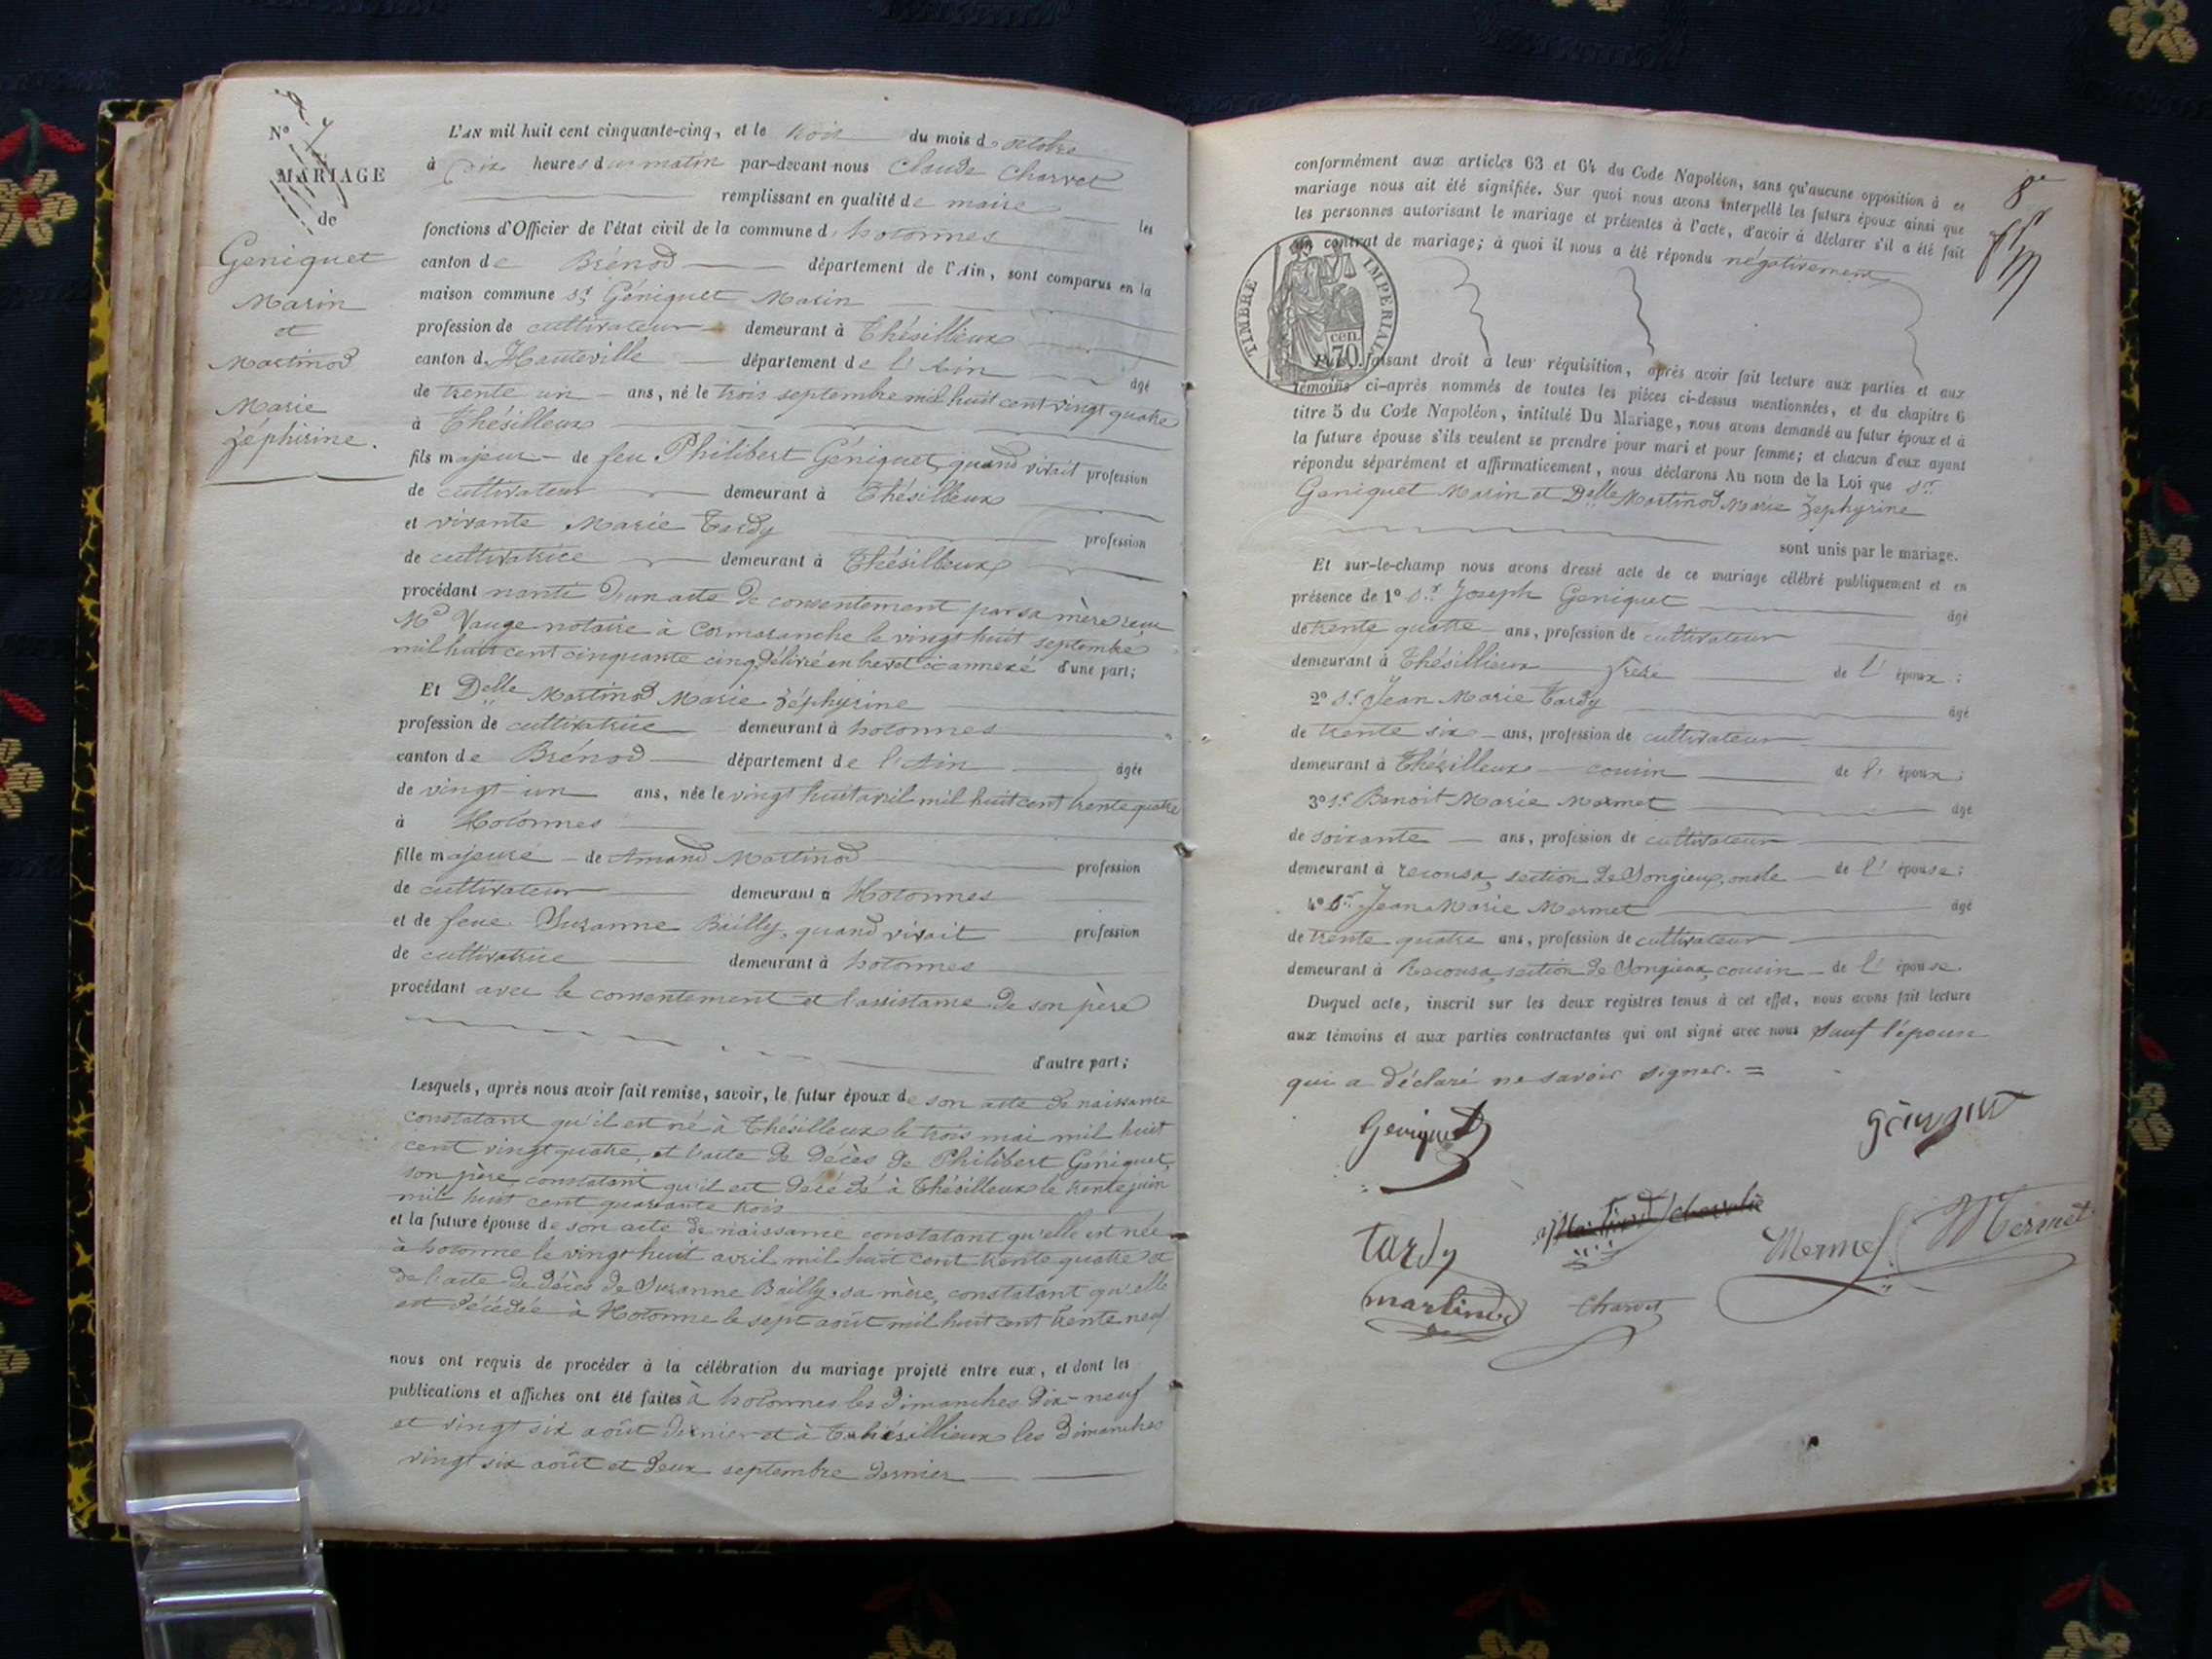 N° 7
MARIAGE
de
Geniquet
Marin
et
Martinod
Marie
Zéphirine.
L'AN mil huit cent cinquante-cinq, et le trois du mois d'octobre
à dix heures du matin par-devant nous Claude Charvet
remplissant en qualité de maire les
fonctions d'Officier de l'état civil de la commune d hotonnes
canton de Brénod département de l'Ain, sont comparus en la
maison commune Sr Géniquet Marin
profession de cultivateur demeurant à Thésillieux
canton d Hauteville département de l'Ain âgé
de trente un ans, né le trois septembre mil huit cent vingt quatre
à Thésilleux
fils majeur de feu Philibert Géniquet, quand vivait profession
de cultivateur demeurant à Thésilleux
et vivante Marie Tardy profession
de cultivatrice demeurant à Thésilleux
procédant nanti d'un acte de consentement par sa mère reçu
Me Vauge notaire à Cormaranche le vingt huit septembre
mil huit cent cinquante cinq, délivré en brevet ci annexé d'une part;
Et Delle Martinod Marie Zéphyrine
profession de cultivatrice demeurant à hotonnes
canton de Brénod département de l'Ain âgée
de vingt-un ans, née le vingt huit avril mil huit cent trente quatre
à Hotonnes
fille majeure de Amand Martinod profession
de cultivateur demeurant à Hotonnes
et de feue Suzanne Bailly, quand vivait profession
de cultivatrice demeurant à hotonnes
procédant avec le consentement et l'assistance de son père
d'autre part;
Lesquels, après nous avoir fait remise, savoir, le futur époux de son acte de naissance
constatant qu'il est né à Thésilleux le trois mai mil huit
cent vingt quatre, et l'acte de décès de Philibert Géniquet,
son père constatant qu'il est décédé à Thésilleux le trente juin
mil huit cent quarante trois
et la future épouse de son acte de naissance constatant qu'elle est née
à hotonne le vingt huit avril mil huit cent trente quatre et
de l'acte de décès de Suzanne Bailly, sa mère, constatant qu'elle
est décédée à Hotonne le sept août mil huit cent trente neuf
nous ont requis de procéder à la célébration du mariage projeté entre eux, et dont les
publications et affiches ont été faites à hotonnes les dimanches dix-neuf
et vingt six août dernier et à Thésillieux les dimanches
vingt six août et deux septembre dernier
8e
conformément aux articles 63 et 64 du Code Napoléon, sans qu'aucune opposition à ce
mariage nous ait été signifiée. Sur quoi nous avons interpellé les futurs époux ainsi que
les personnes autorisant le mariage et présentes à l'acte, d'avoir à déclarer s'il a été fait
un contrat de mariage; à quoi il nous a été répondu négativement
TIMBRE IMPERIAL
70 cen.
Puis, faisant droit à leur réquisition, après avoir fait lecture aux parties et aux
témoins ci-après nommés de toutes les pièces ci-dessus mentionnées, et du chapitre 6
titre 5 du Code Napoléon, intitulé Du Mariage, nous avons demandé au futur époux et à
la future épouse s'ils veulent se prendre pour mari et pour femme; et chacun d'eux ayant
répondu séparément et affirmativement, nous déclarons Au nom de la Loi que Sr
Geniquet Marin et Delle Martinod Marie Zephyrine
sont unis par le mariage.
Et sur-le-champ nous avons dressé acte de ce mariage célébré publiquement et en
présence de 1° Sr Joseph Geniquet âgé
de trente quatre ans, profession de cultivateur
demeurant à Thésillieux frère de l'époux;
2° Sr Jean Marie Tardy âgé
de trente six ans, profession de cultivateur
demeurant à Thésilleux cousin de l'époux;
3° Sr Benoit Marie Mermet âgé
de soixante ans, profession de cultivateur
demeurant à recousa, section de Songieux, oncle de l'épouse;
4° Sr Jean Marie Mermet âgé
de trente quatre ans, profession de cultivateur
demeurant à Recousa, section de Songieux, cousin de l'épouse.
Duquel acte, inscrit sur les deux registres tenus à cet effet, nous avons fait lecture
aux témoins et aux parties contractantes qui ont signé avec nous Sauf l'épouse
qui a déclaré ne savoir signer. =
Geniquet
Géniquet
Tardy
Mermet
Mermet
martinod
Charvet